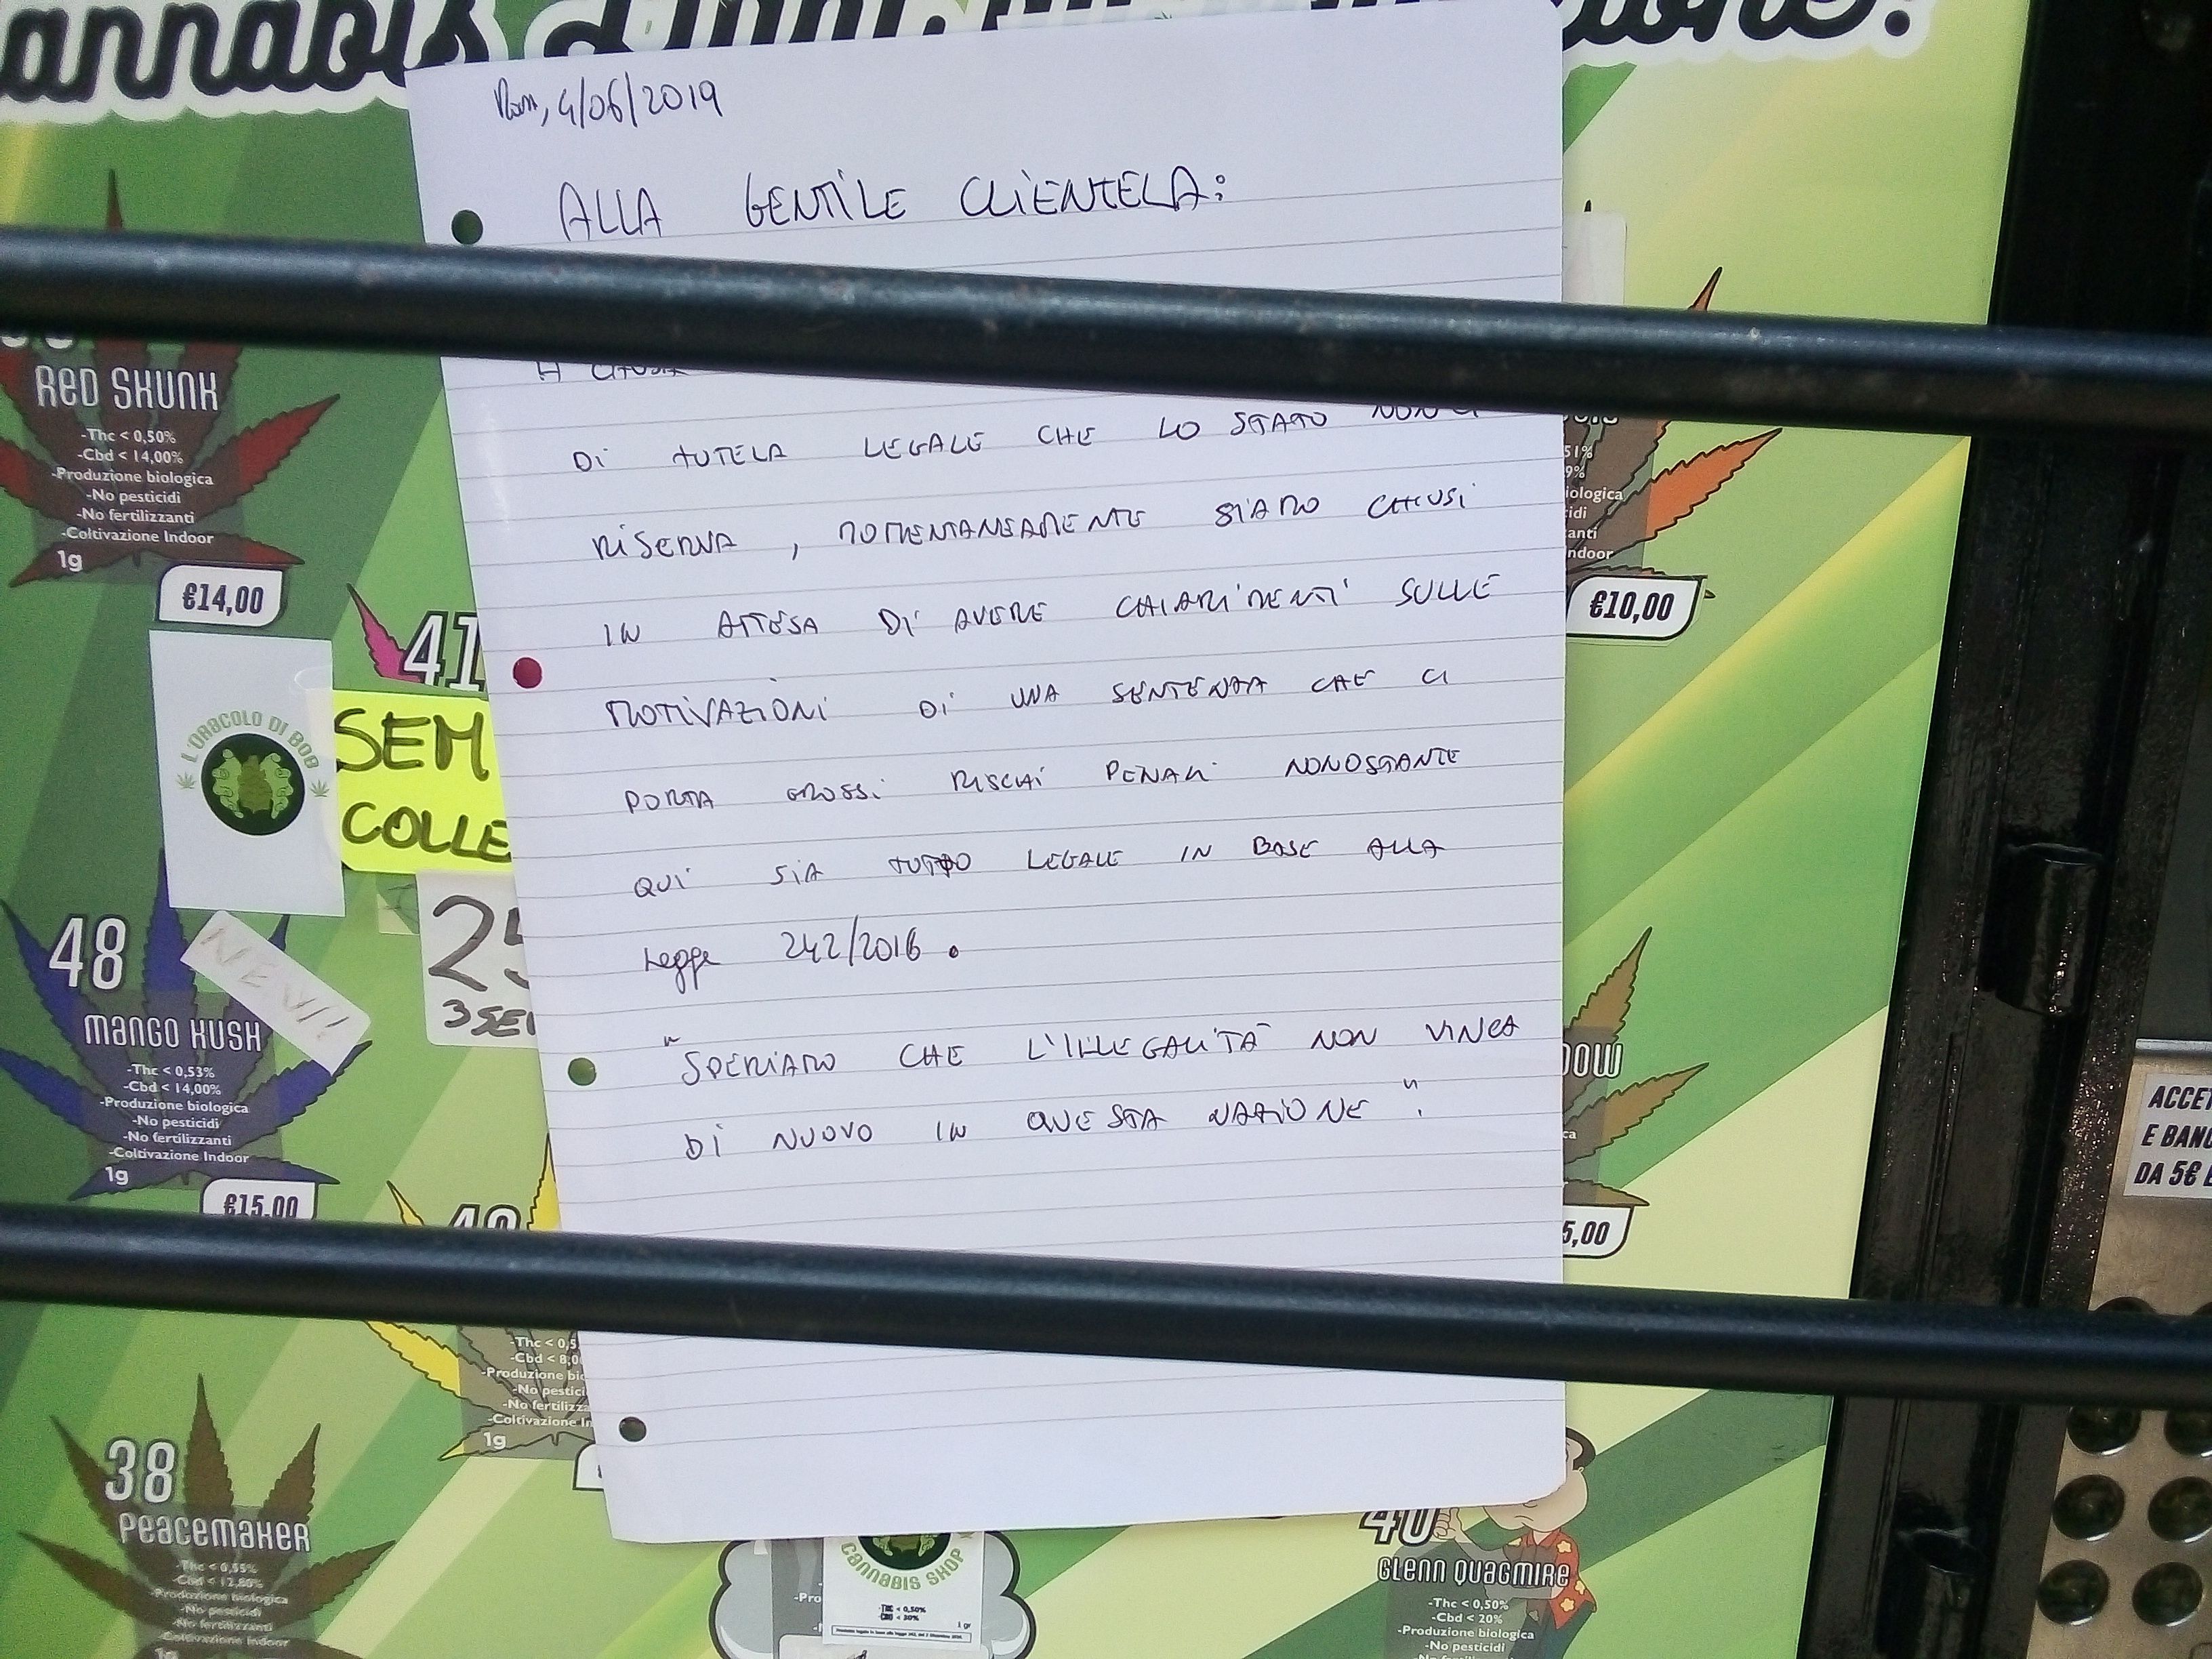 annabis
Roma, 4/06/2019
ALLA GENTILE CLIENTELA:
A CAUSA
DI TUTELA LEGALE CHE LO STATO NON CI
RISERVA, MOMENTANEAMENTE SIAMO CHIUSI
IN ATTESA DI AVERE CHIARIMENTI SULLE
MOTIVAZIONI DI UNA SENTENZA CHE CI
PORTA GROSSI RISCHI PENALI NONOSTANTE
QUI SIA TUTTO LEGALE IN BASE ALLA
Legge 242/2016.
"SPERIAMO CHE L'ILLEGALITÀ NON VINCA
DI NUOVO IN QUESTA NAZIONE".
RED SKUNK
-Thc < 0,50%
-Cbd < 14,00%
-Produzione biologica
-No pesticidi
-No fertilizzanti
-Coltivazione Indoor
1g
€14,00
41
L'ORACOLO DI BOB
SEM
COLLE
25
3 SE
48
NEW!
MANGO KUSH
-Thc < 0,53%
-Cbd < 14,00%
-Produzione biologica
-No pesticidi
-No fertilizzanti
-Coltivazione Indoor
1g
€15,00
-Thc < 0,5
-Cbd < 8,0
-Produzione bio
-No pestici
-No fertilizza
-Coltivazione In
1g
38
PEACEMAKER
-Thc < 0,55%
-Cbd < 12,80%
-Produzione biologica
-No pesticidi
-No fertilizzanti
-Coltivazione Indoor
1g
51%
9%
iologica
idi
anti
ndoor
€10,00
OW
ca
5,00
CANNABIS SHOP
THC < 0,50%
CBD < 30%
1 gr
-Pro
40
GLENN QUAGMIRE
-Thc < 0,50%
-Cbd < 20%
-Produzione biologica
-No pesticidi
ACCET
E BANC
DA 5€ E